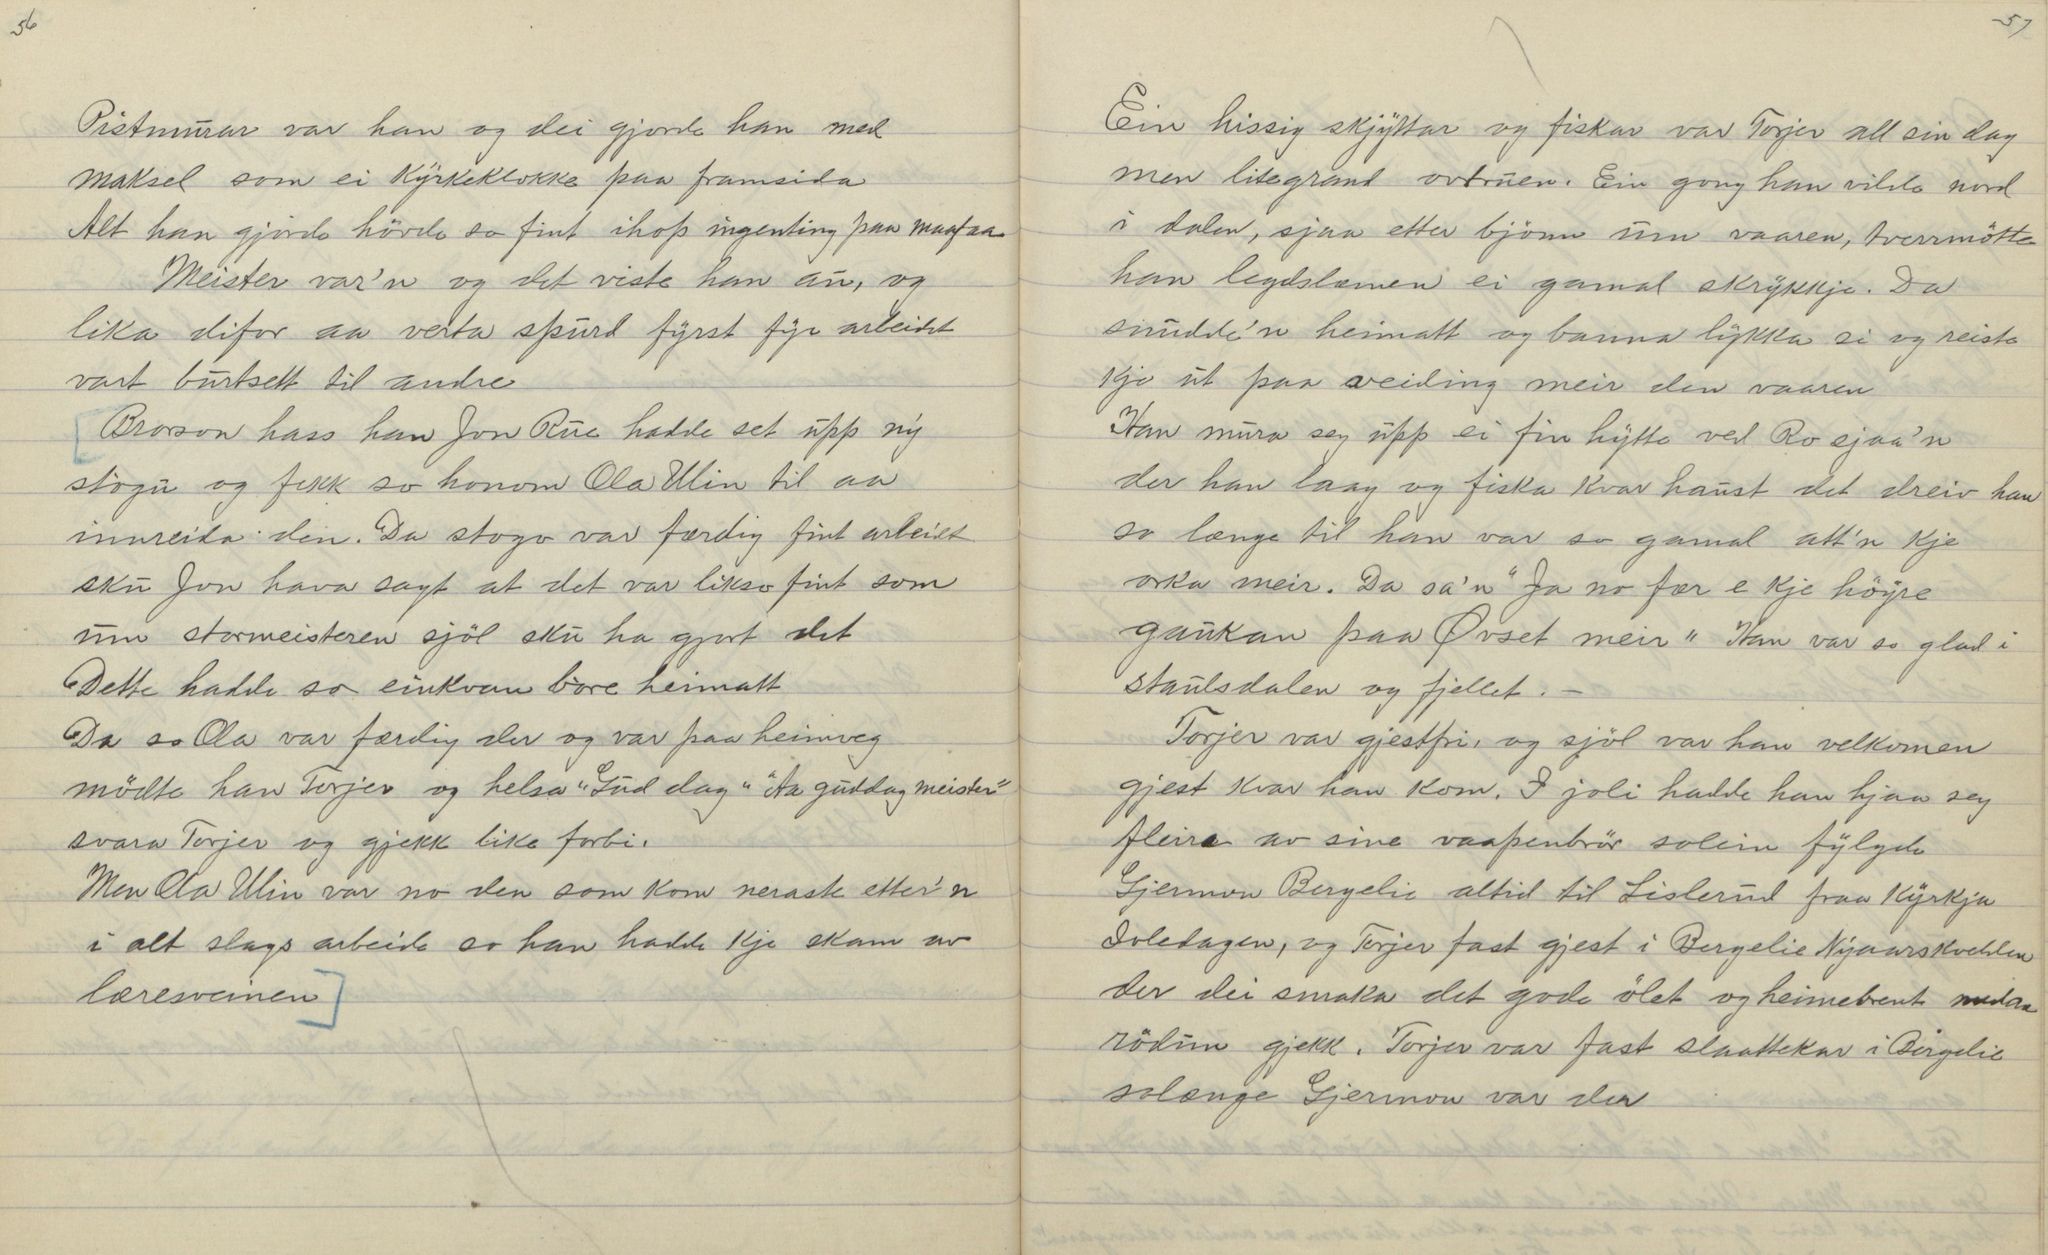 56
Pistmurar var han og dei gjorde han med
maksel som ei Kyrkeklokke paa framsida
Alt han gjorde hörde so fint ihop ingenting paa maafaa
Meister var'n og det viste han au, og
lika difor aa verta spurd fyrst fyr arbeidet
vart burtsett til andre
[Brorson hass han Jon Rue hadde set upp ny
stogu og fekk so honom Ola Ulin til aa
innreida den. Da stogo var færdig fint arbeidt
sku Jon hava sagt at det var likso fint som
um stormeisteren sjöl sku ha gjort det
Dette hadde so einkvan bore heimatt
Da so Ola var færdig der og var paa heimveg
mödte han Torjer og helsa "Gud dag" "Aa guddag meister"
svara Torjer og gjekk like forbi.
Men Ola Ulin var no den som kom neraste etter'n
i alt slags arbeide so han hadde kje skam av
læresveinen]
57
Ein hissig skjyttar og fiskar var Torjer all sin dag
men litegrand ovtruen. Ein gong han vilde nord
i dalen, sjaa etter björnn um vaaren, tverrmötte
han legdslæmen ei gamal skrykkje. Da
snudde'n heimatt og banna lykka si og reiste
kje ut paa veiding meir den vaaren
Han mura seg upp ei fin hytte ved Ro sjaa'n
der han laag og fiska kvar haust det dreiv han
so længe til han var so gamal att'n kje
orka meir. Da sa'n "Ja no fær e kje höyre
gaukan paa Övset meir" Han var so glad i
staulsdalen og fjellet. –
Torjer var gjestfri, og sjöl var han velkomen
gjest kvar han kom. I joli hadde han hjaa seg
fleire av sine vaapenbrör solein fylgde
Gjermon Bergelie altid til Lislerud fraa Kyrkja
Joledagen, og Torjer fast gjest i Bergelie Nyaarskvelden
der dei smaka det gode ölet og heimebrent medan
rödun gjekk. Torjer var fast slaattekar i Bergelie
solænge Gjermon var der